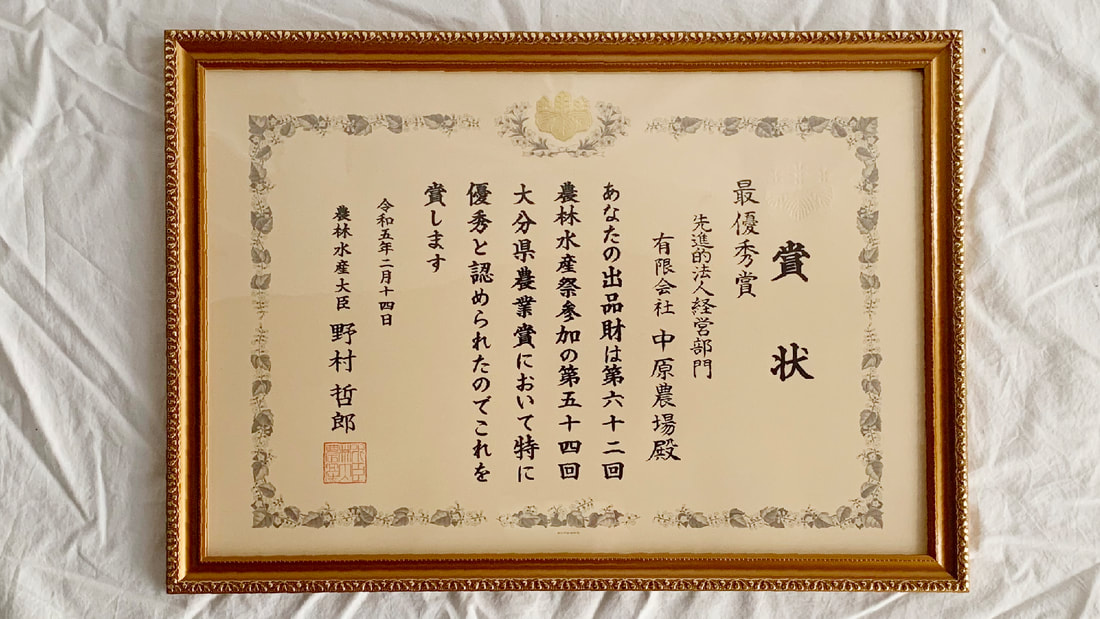 賞状
最優秀賞
先進的法人経営部門
有限会社 中原農場殿
あなたの出品財は第六十二回
農林水産祭参加の第五十四回
大分県農業賞において特に
優秀と認められたのでこれを
賞します
令和五年二月十四日
農林水産大臣 野村哲郎